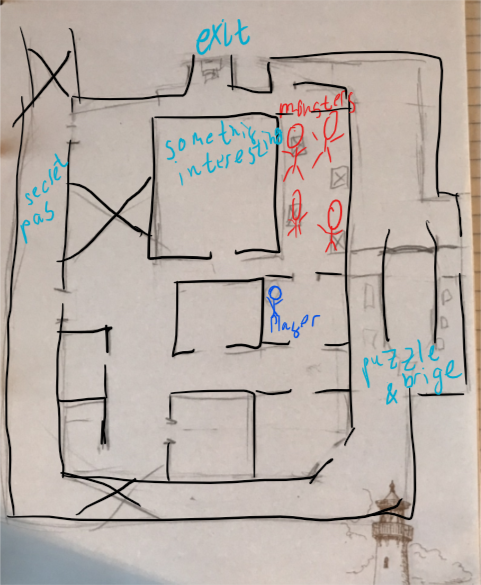 exit
monsters
somethig
interesting
secret
pas
Player
puzzle
& brige